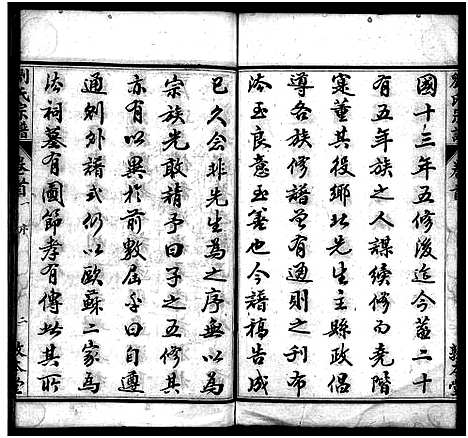 國十三年五修後迄今蓋二十
有五年族之人謀續修为堯階
寔董其役鄉北先生主縣政倡
導各族修譜曾有通則之刊布
法至良意至善也今譜稿告成
已久会非先生為之序無以
宗族光敢請予曰子之五修其
亦有以異於前數屆乎曰自遵
通例外譜式仍以歐蘇二家為
法祠墓有圖節孝有傳此其所
劉氏宗譜
卷首
序
二
敦本堂